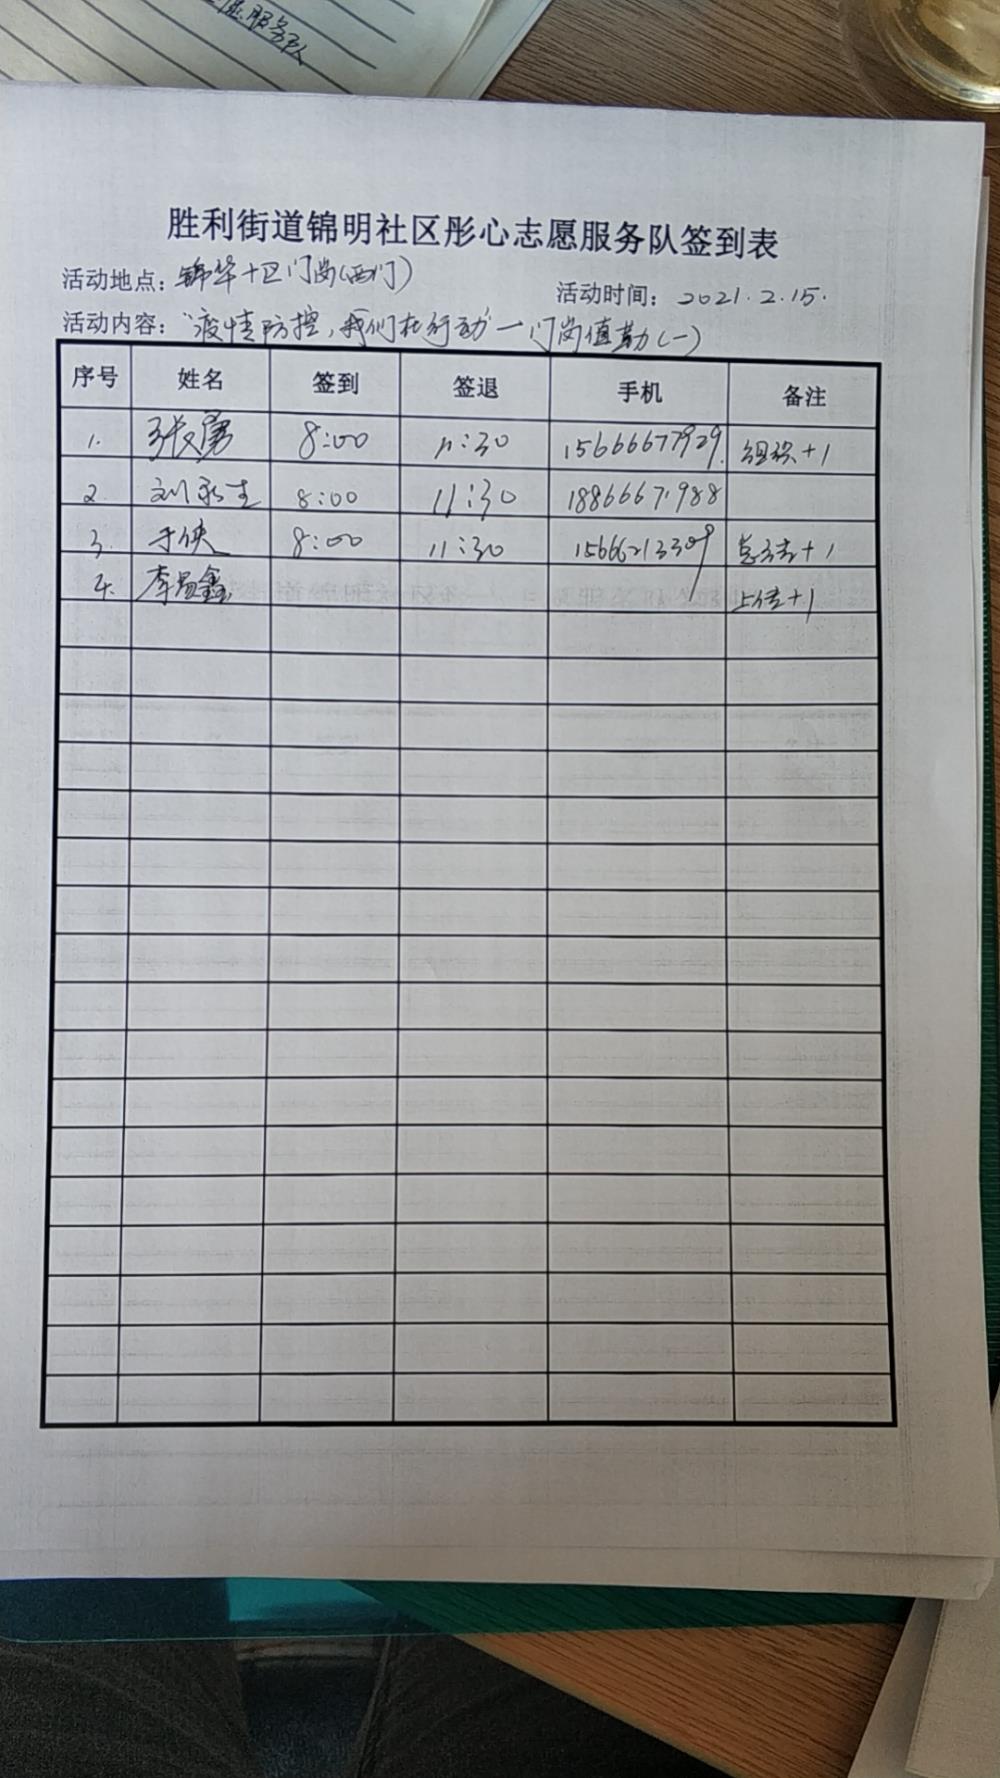 服务队
胜利街道锦明社区彤心志愿服务队签到表
活动地点：锦华十区门岗(西门)
活动时间：2021.2.15.
活动内容：“疫情防控，我们在行动”—门岗值勤(一)
序号 姓名 签到 签退 手机 备注
1. 张勇 8:00 11:30 15666677929 组织+1
2. 刘永生 8:00 11:30 18866671988
3. 于侠 8:00 11:30 15666213309 +1
4. 李昌鑫 上传+1